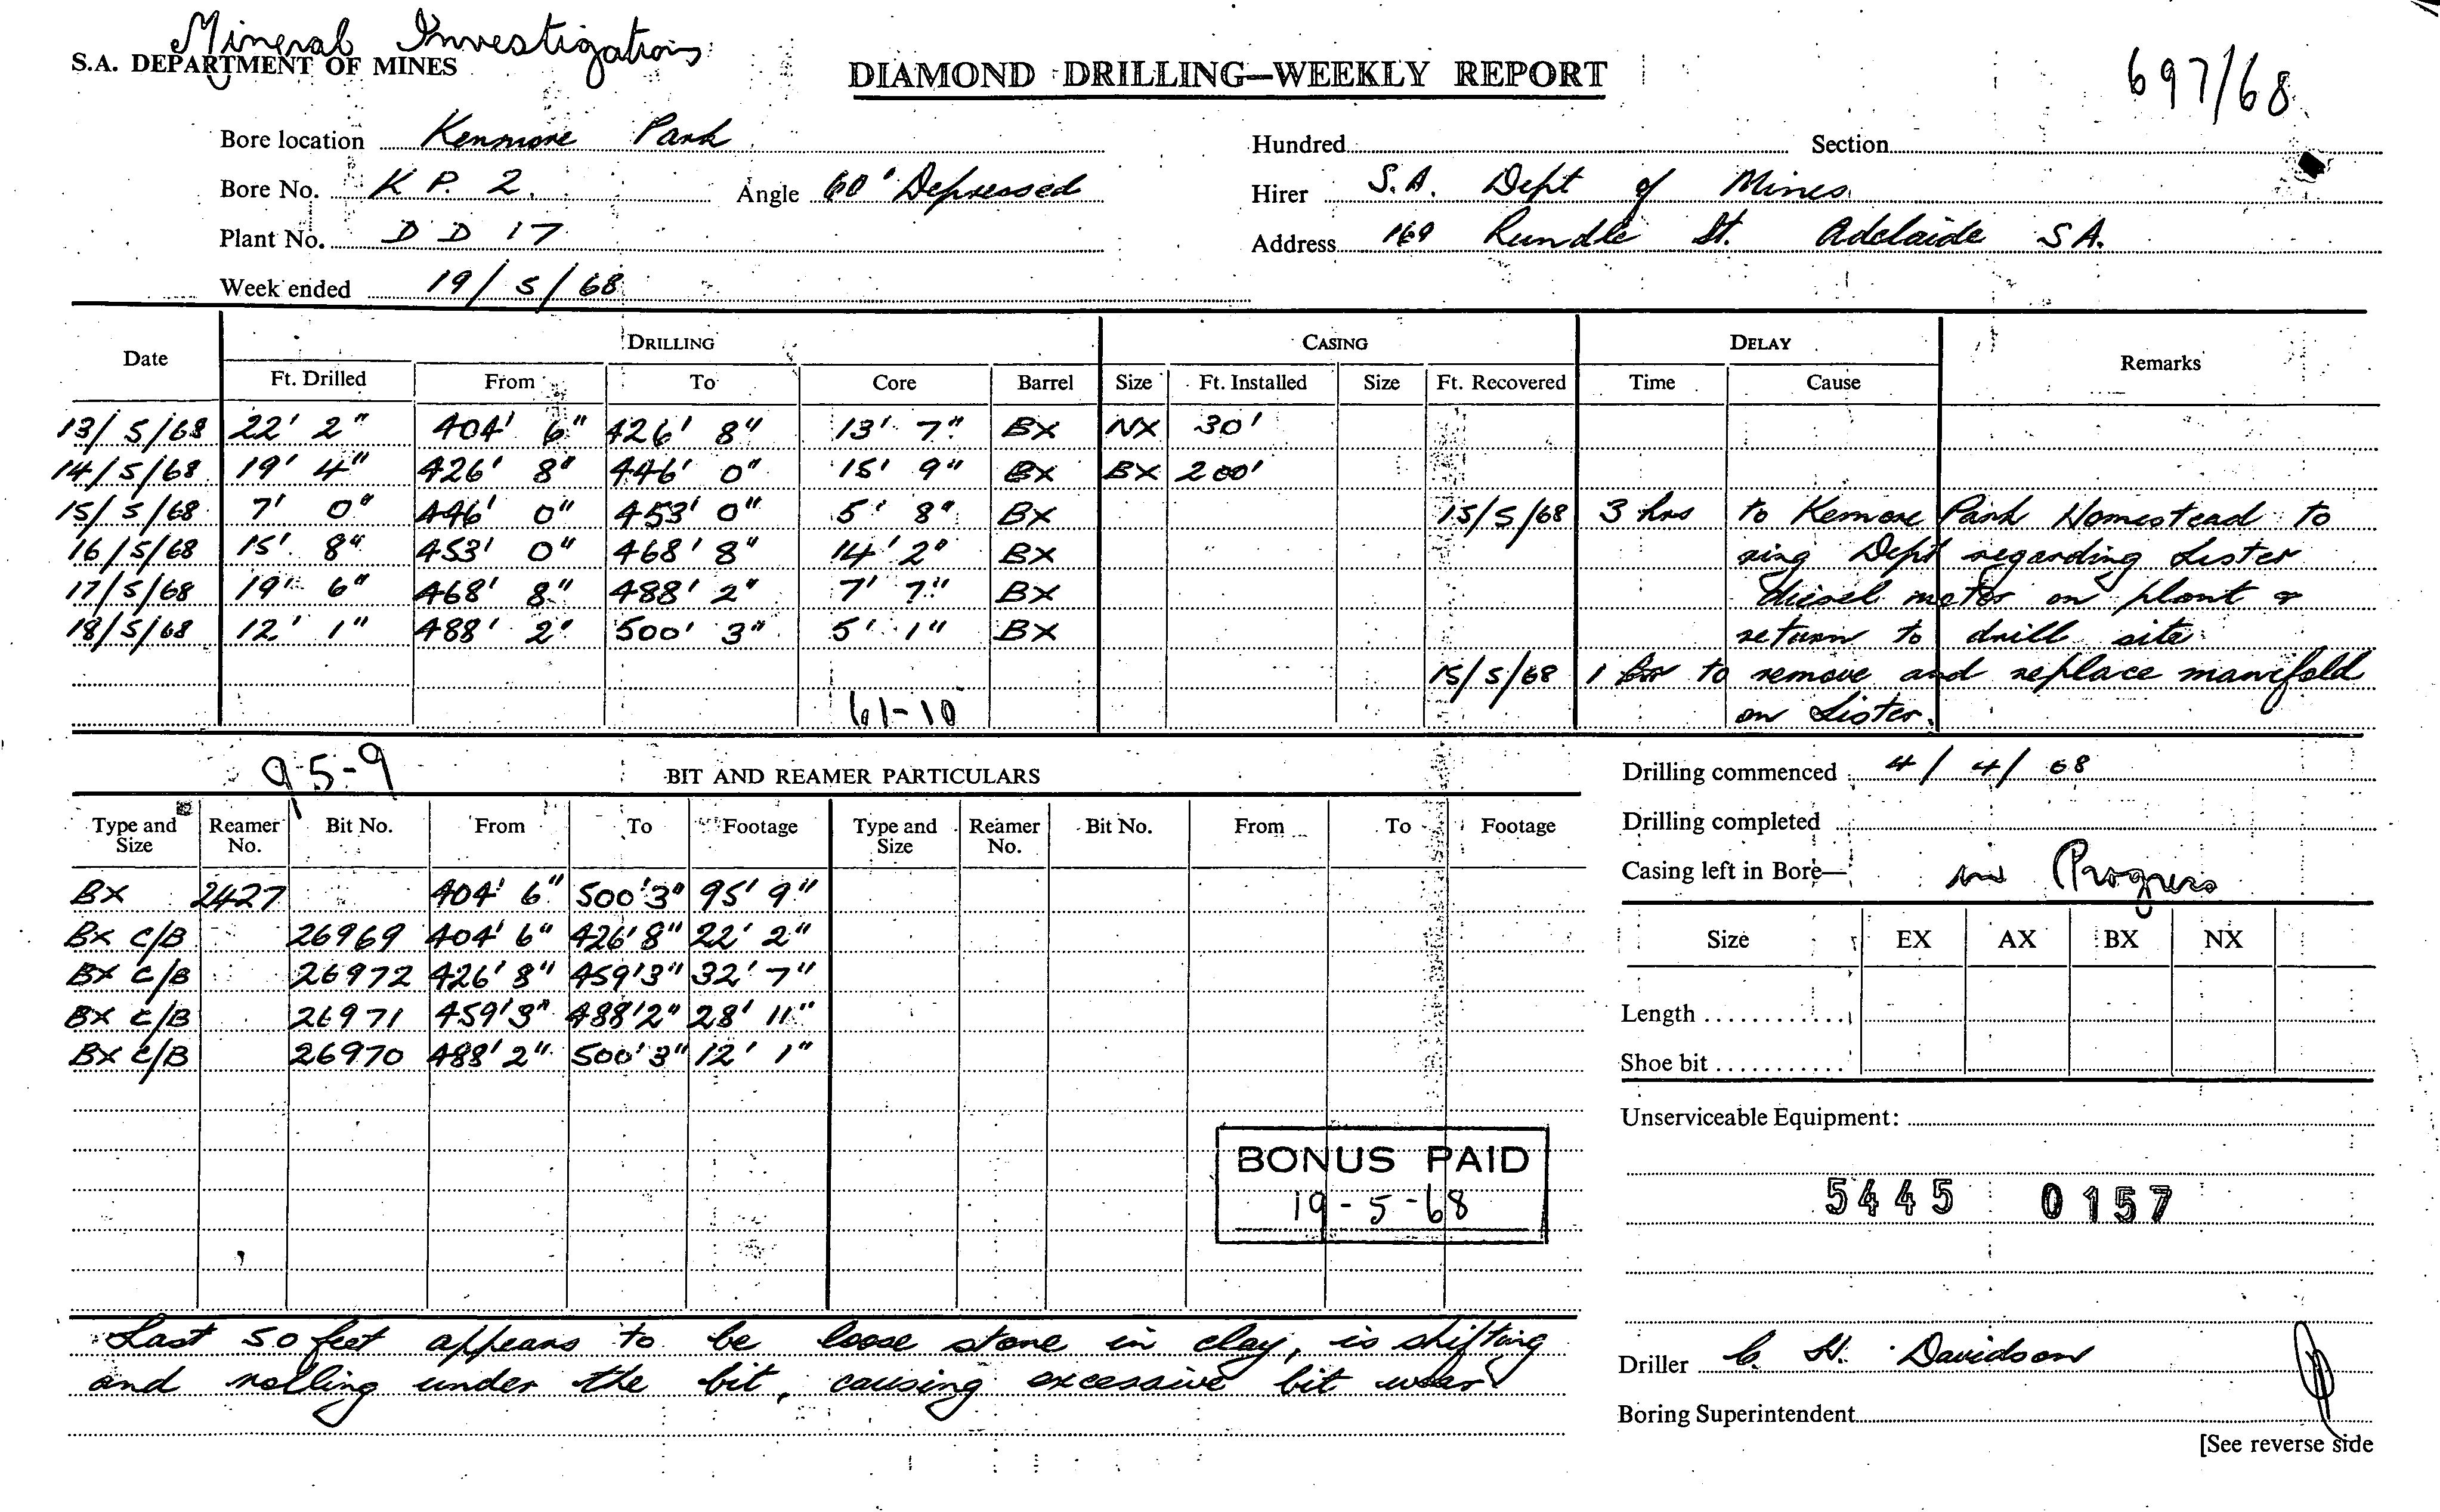 Mineral Investigations
S.A. DEPARTMENT OF MINES
DIAMOND DRILLING—WEEKLY REPORT
697/68
Bore location Kenmore Park
Hundred Section
Bore No. K P. 2. Angle 60° Depressed
Hirer S.A. Dept of Mines
Plant No. D D 17
Address 169 Rundle St. Adelaide S A.
Week ended 19/5/68
Date DRILLING CASING DELAY Remarks
Ft. Drilled From To Core Barrel Size Ft. Installed Size Ft. Recovered Time Cause
13/5/68 22' 2" 404' 6" 426' 8" 13' 7" BX NX 30'
14/5/68 19' 4" 426' 8" 446' 0" 15' 9" BX BX 200'
15/5/68 7' 0" 446' 0" 453' 0" 5' 8" BX 15/5/68 3 hrs to Kemore Park Homestead to
16/5/68 15' 8" 453' 0" 468' 8" 14' 2" BX ring Dept regarding Lister
17/5/68 19' 6" 468' 8" 488' 2" 7' 7" BX diesel motor on plant &
18/5/68 12' 1" 488' 2" 500' 3" 5' 1" BX return to drill site
15/5/68 1 hr to remove and replace manifold
61-10 on Lister.
95-9
BIT AND REAMER PARTICULARS
Type and Size Reamer No. Bit No. From To Footage Type and Size Reamer No. Bit No. From To Footage
BX 2427 404' 6" 500' 3" 95' 9"
BX C/B 26969 404' 6" 426' 8" 22' 2"
BX C/B 26972 426' 8" 459' 3" 32' 7"
BX C/B 26971 459' 3" 488' 2" 28' 11"
BX C/B 26970 488' 2" 500' 3" 12' 1"
BONUS PAID
19-5-68
Last 50 feet appears to be loose stone in clay, is shifting
and rolling under the bit, causing excessive bit wear
Drilling commenced 4/4/68
Drilling completed
Casing left in Bore— in Progress
Size EX AX BX NX
Length
Shoe bit
Unserviceable Equipment:
5445 0157
Driller C. H. Davidson
Boring Superintendent
[See reverse side